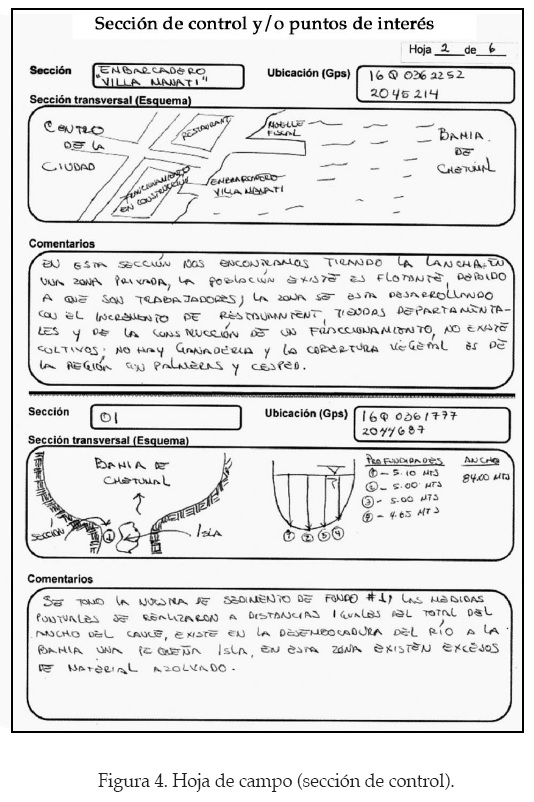 Sección de control y/o puntos de interés
Hoja 2 de 6
Sección
EMBARCADERO
"VILLA MANATI"
Ubicación (Gps)
16Q 0362252
2045214
Sección transversal (Esquema)
CENTRO
DE LA
CIUDAD
RESTAURANT
MUELLE
FISCAL
BAHIA
DE
CHETUMAL
FRACCIONAMIENTO
EN CONSTRUCCION
EMBARCADERO
VILLA MANATI
Comentarios
EN ESTA SECCIÓN NOS ENCONTRAMOS TIRANDO LA LANCHA, EN
UNA ZONA PRIVADA, LA POBLACIÓN EXISTE ES FLOTANTE, DEBIDO
A QUE SON TRABAJADORES, LA ZONA SE ESTA DESARROLLANDO
CON EL INCREMENTO DE RESTAURNTENT, TIENDAS DEPARTAMENTA-
LES Y DE LA CONSTRUCCIÓN DE UN FRACCIONAMIENTO, NO EXISTE
CULTIVOS, NO HAY GANADERIA Y LA COBERTURA VEGETAL ES DE
LA REGIÓN CON PALMERAS Y CESPED.
Sección
01
Ubicación (Gps)
16Q 0361777
2044687
Sección transversal (Esquema)
BAHIA DE
CHETUMAL
SECCIÓN
1
ISLA
1 2 3 4
PROFUNDIDADES
1 - 5.10 MTS
2 - 5.00 MTS
3 - 5.00 MTS
4 - 4.65 MTS
ANCHO
84.00 MTS
Comentarios
SE TOMO LA MUESTRA DE SEDIMENTO DE FONDO #1, LAS MEDIDAS
PUNTUALES SE REALIZARON A DISTANCIAS IGUALES DEL TOTAL DEL
ANCHO DEL CAUCE, EXISTE EN LA DESEMBOCADURA DEL RÍO A LA
BAHIA UNA PEQUEÑA ISLA, EN ESTA ZONA EXISTEN EXCESOS
DE MATERIAL AZOLVADO.
Figura 4. Hoja de campo (sección de control).